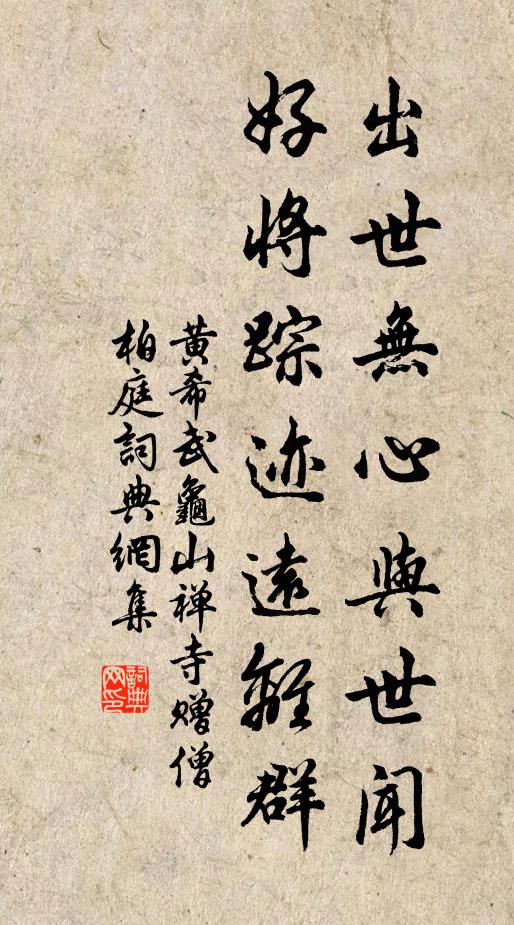 出世無心與世闻
好将踪迹遠離群
黄希武龜山禅寺赠僧
柏庭詞典網集
詞典网印